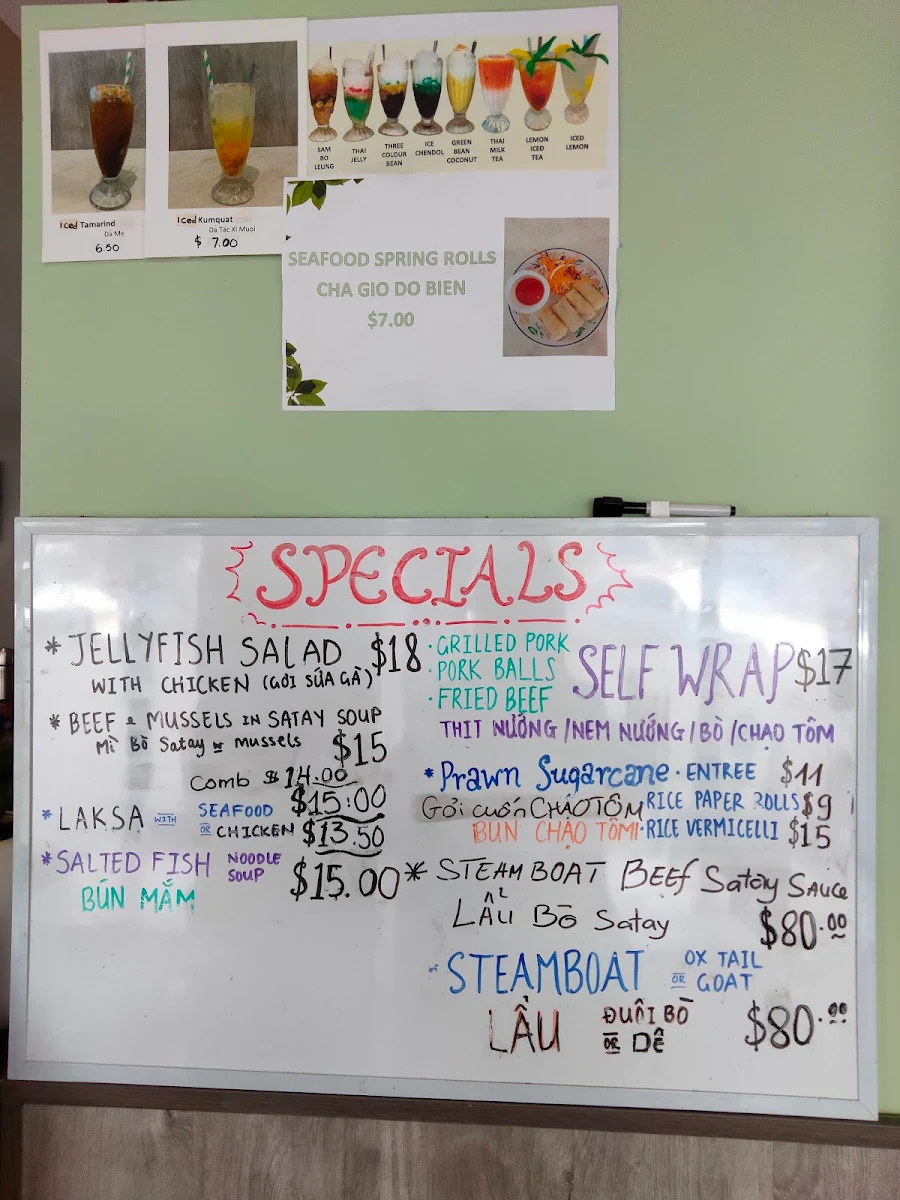 Iced Tamarind
Da Me
6.50
Iced Kumquat
Da Tac Xi Muoi
$ 7.00
SAM BO LEUNG
THAI JELLY
THREE COLOUR BEAN
ICE CHENDOL
GREEN BEAN COCONUT
THAI MILK TEA
LEMON ICED TEA
ICED LEMON
SEAFOOD SPRING ROLLS
CHA GIO DO BIEN
$7.00
SPECIALS
* JELLYFISH SALAD $18
WITH CHICKEN (GỎI SỨA GÀ)
* BEEF & MUSSELS IN SATAY SOUP
Mì Bò Satay or mussels $15
Comb $14.00
* LAKSA WITH SEAFOOD $15:00
OR CHICKEN $13.50
* SALTED FISH NOODLE SOUP $15.00
BÚN MẮM
· GRILLED PORK
· PORK BALLS
· FRIED BEEF
SELF WRAP $17
THIT NƯỚNG / NEM NƯỚNG / BÒ / CHẠO TÔM
* Prawn Sugarcane · ENTREE $11
Gỏi cuốn CHẠO TÔM RICE PAPER ROLLS $9
BUN CHẠO TÔM · RICE VERMICELLI $15
* STEAMBOAT Beef Satay Sauce
LẨU Bò Satay $80.00
STEAMBOAT OX TAIL
OR GOAT
LẨU ĐUÔI BÒ
OR DÊ $80.00